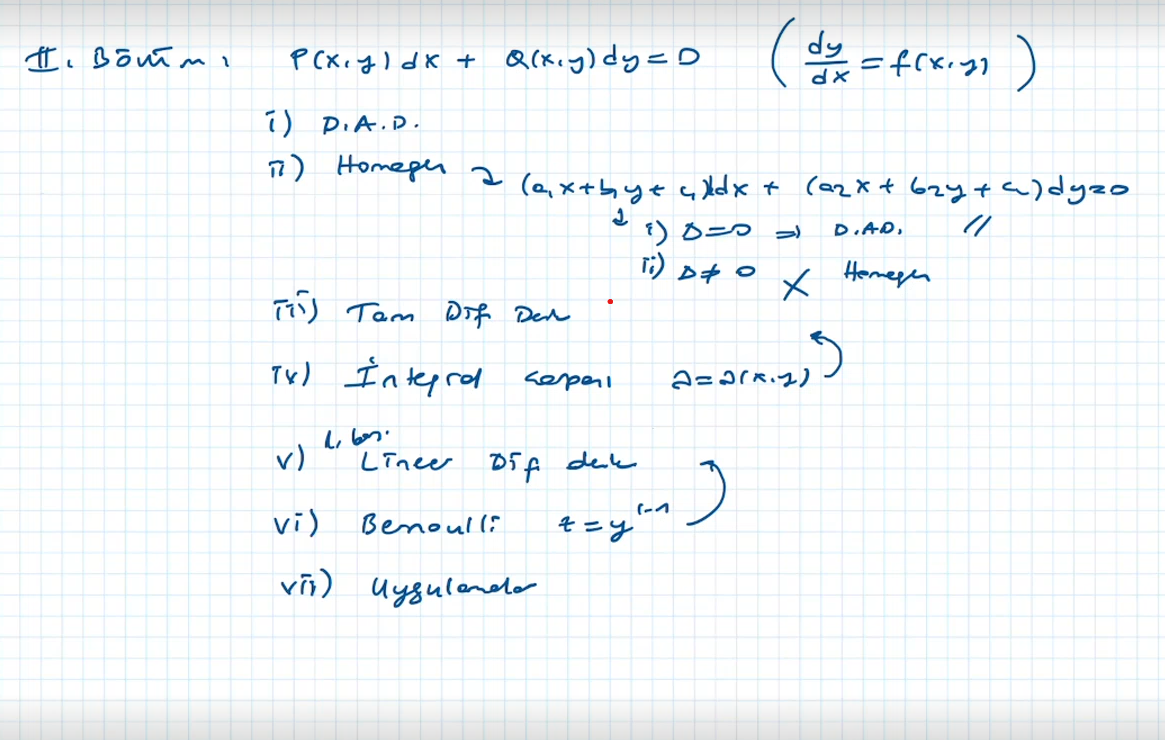 II. Bölüm : P(x,y)dx + Q(x,y)dy=0 (dy/dx = f(x,y))
i) D.A.D.
ii) Homogen ↷ (a₁x+b₁y+c₁)dx + (a₂x+b₂y+c₂)dy=0
↓ i) Δ=0 ⇒ D.A.D. //
ii) Δ≠0 Homogen
iii) Tam Dif Denk
iv) İntegral çarpanı λ=λ(x,y)
v) 1. bas. Lineer Dif denk
vi) Bernoulli z=y¹⁻ⁿ
vii) Uygulamalar